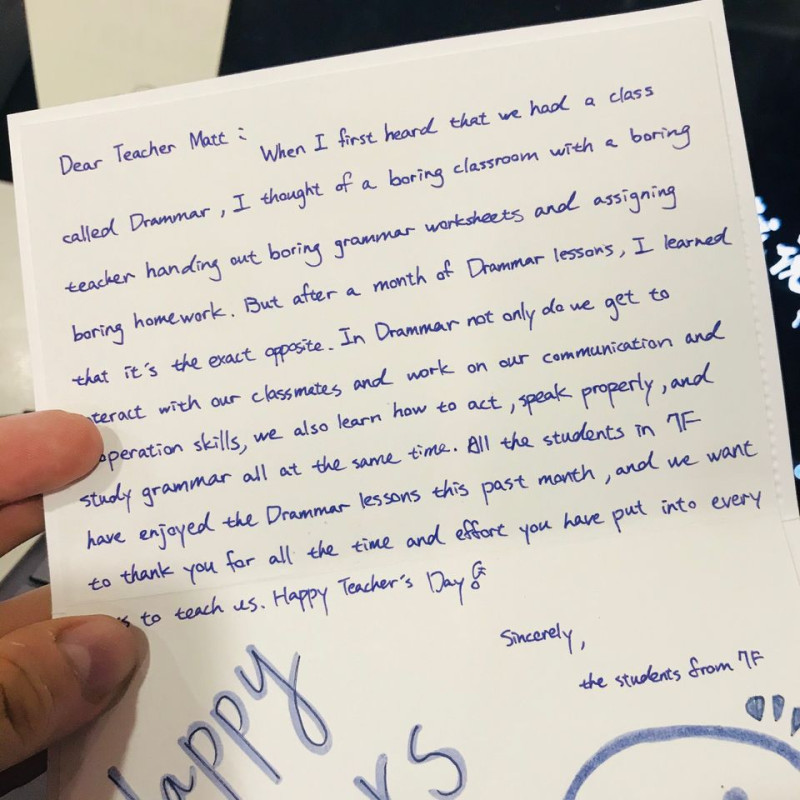 Dear Teacher Matt: When I first heard that we had a class
called Drammar, I thought of a boring classroom with a boring
teacher handing out boring grammar worksheets and assigning
boring homework. But after a month of Drammar lessons, I learned
that it's the exact opposite. In Drammar not only do we get to
teract with our classmates and work on our communication and
operation skills, we also learn how to act, speak properly, and
study grammar all at the same time. All the students in 7F
have enjoyed the Drammar lessons this past month, and we want
to thank you for all the time and effort you have put into every
to teach us. Happy Teacher's Day!
Sincerely,
the students from 7F
Happy
rs